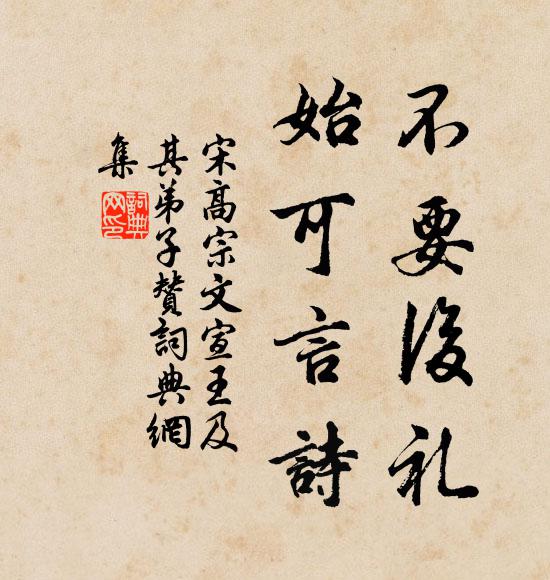 不要後礼
始可言詩
宋高宗文宣王及
其弟子贊詞典網
集
詞典
网印